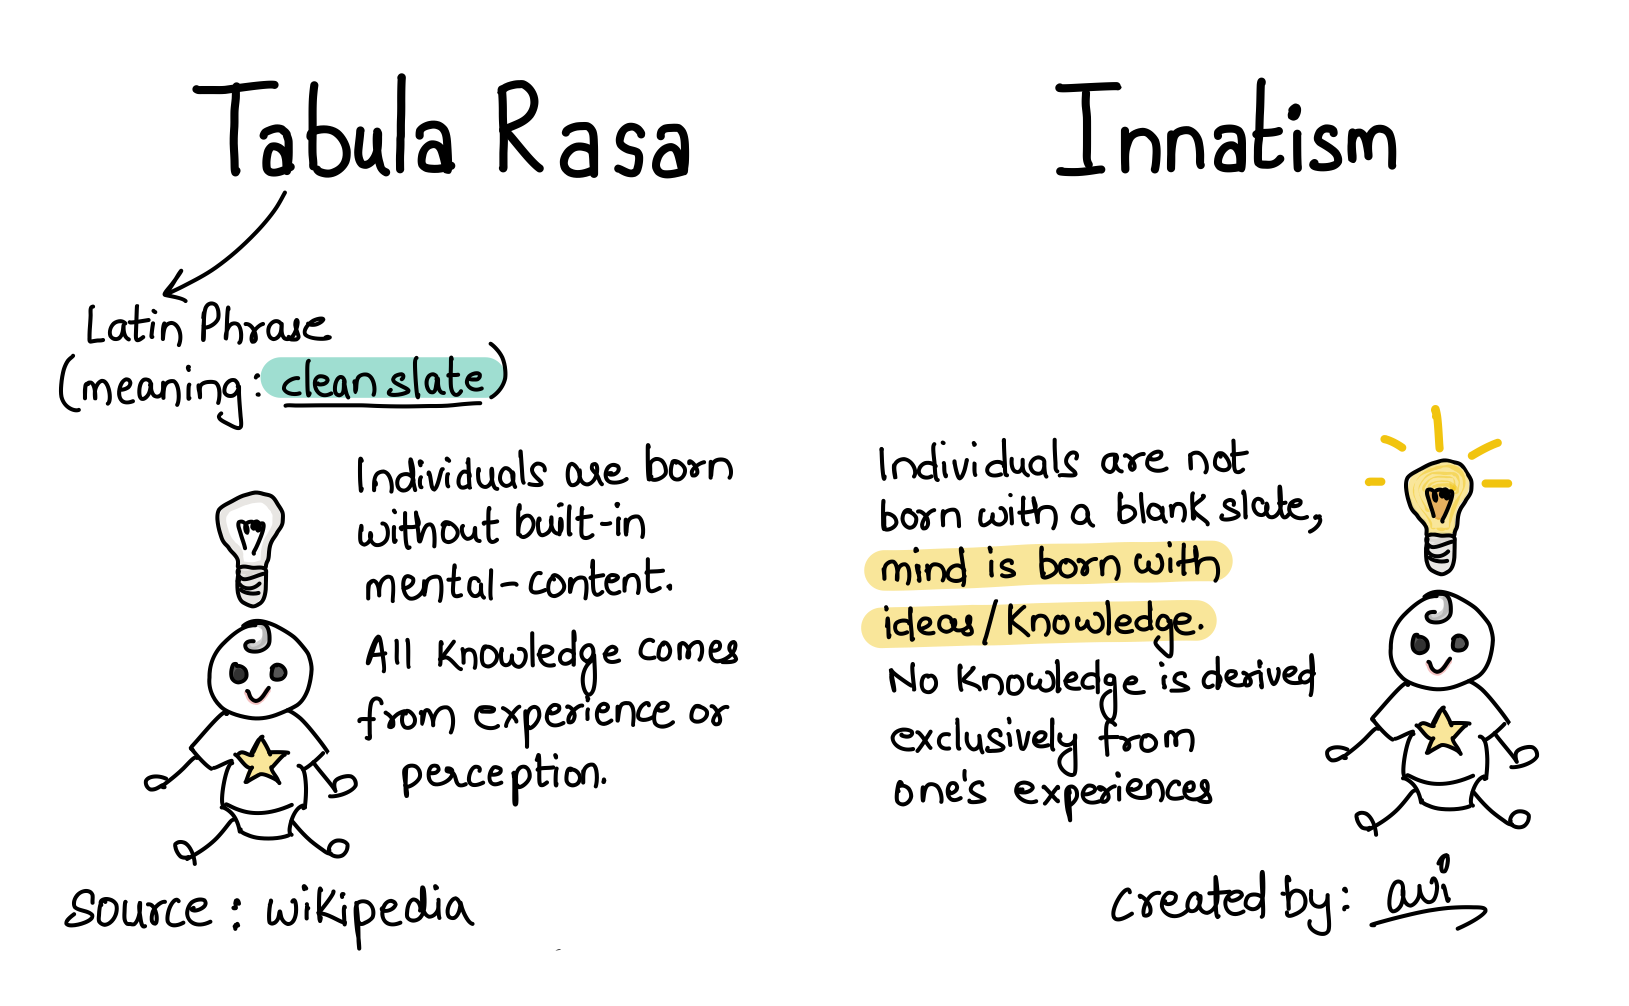 Tabula Rasa
Latin Phrase
(meaning: clean slate)
Individuals are born
without built-in
mental-content.
All Knowledge comes
from experience or
perception.
Source: wikipedia
Innatism
Individuals are not
born with a blank slate,
mind is born with
ideas/Knowledge.
No Knowledge is derived
exclusively from
one's experiences
created by: avi